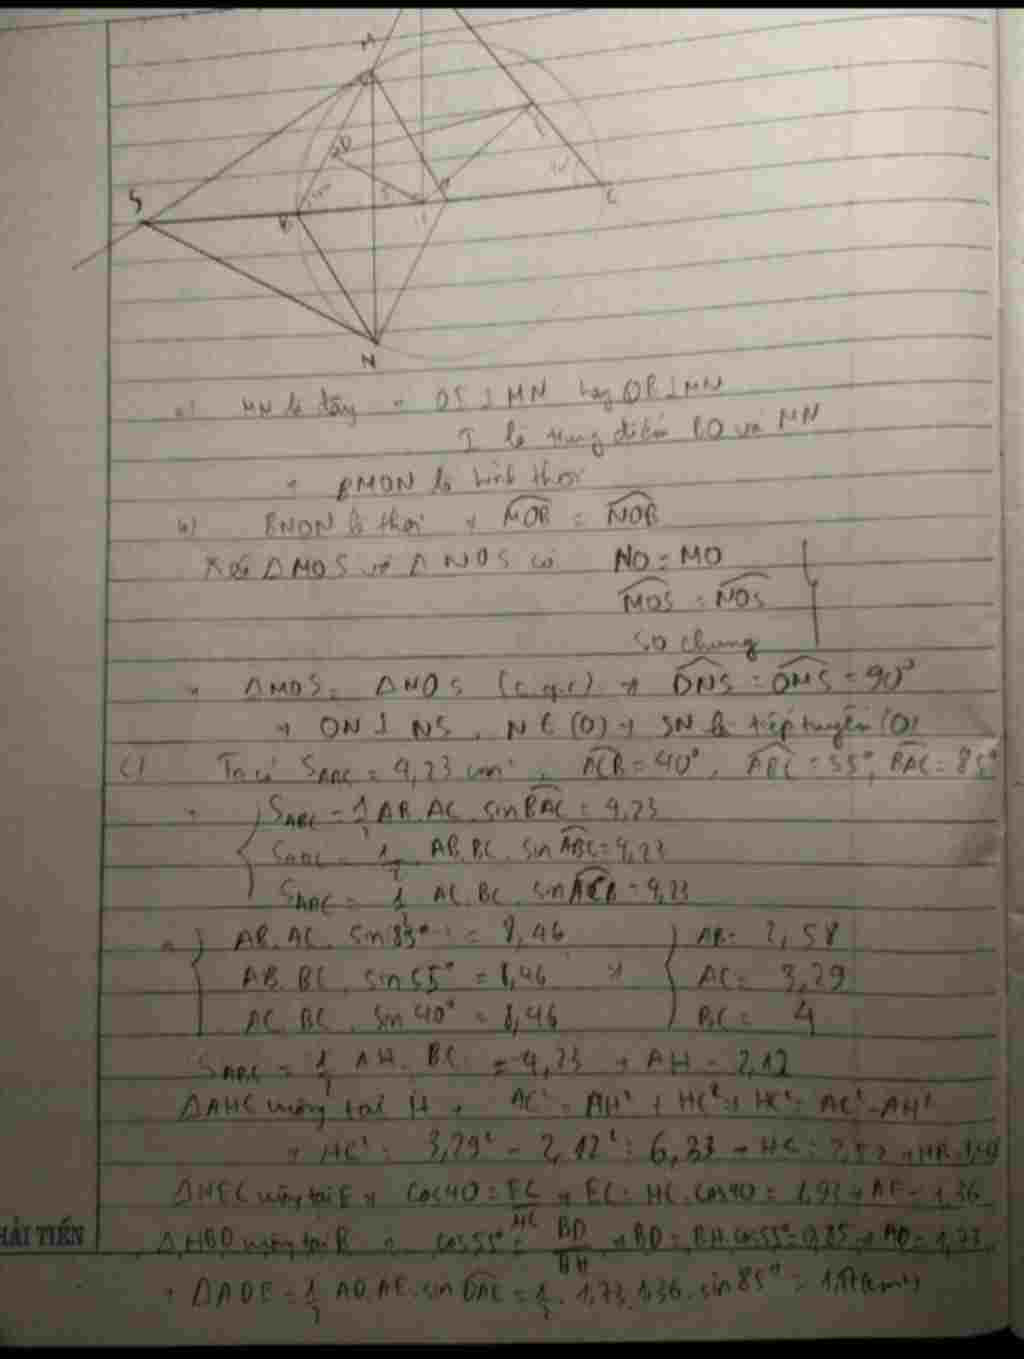 M
D
S
B
C
N
a) MN là dây → OI ⊥ MN hay OB ⊥ MN
I là trung điểm BO và MN
→ BMON là hình thoi
b) BMON là thoi → MOB = NOB
Xét ΔMOS và ΔNOS có NO = MO
MOS = NOS
SO chung
→ ΔMOS = ΔNOS (c.g.c) → ONS = OMS = 90°
→ ON ⊥ NS, N ∈ (O) → SN là tiếp tuyến (O)
c) Ta có S ABC = 4,23 cm², ACB = 40°, ABC = 55°, BAC = 85°
S ABC = 1/2 AB.AC.sin BAC = 4,23
S ABC = 1/2 AB.BC.sin ABC = 4,23
S ABC = 1/2 AC.BC.sin ACB = 4,23
AB.AC.sin 85° = 8,46
AB.BC.sin 55° = 8,46
AC.BC.sin 40° = 8,46
AB = 2,58
AC = 3,29
BC = 4
S ABC = 1/2 AH.BC = 4,23 → AH = 2,12
ΔAHC vuông tại H → AC² = AH² + HC² → HC² = AC² - AH²
→ HC² = 3,29² - 2,12² = 6,33 → HC = 2,52 → HB =
ΔHEC vuông tại E → cos40 = EC/HC → EC = HC.cos40 = 1,93 → AE = 1,36
HẢI TIẾN
ΔHBD vuông tại B → cos55° = BD/BH → BD = BH.cos55° = 0,85 → AD = 1,73
→ ΔADE = 1/2 AD.AE.sin DAE = 1/2 . 1,73.1,36.sin 85° = 1,17 (cm²)